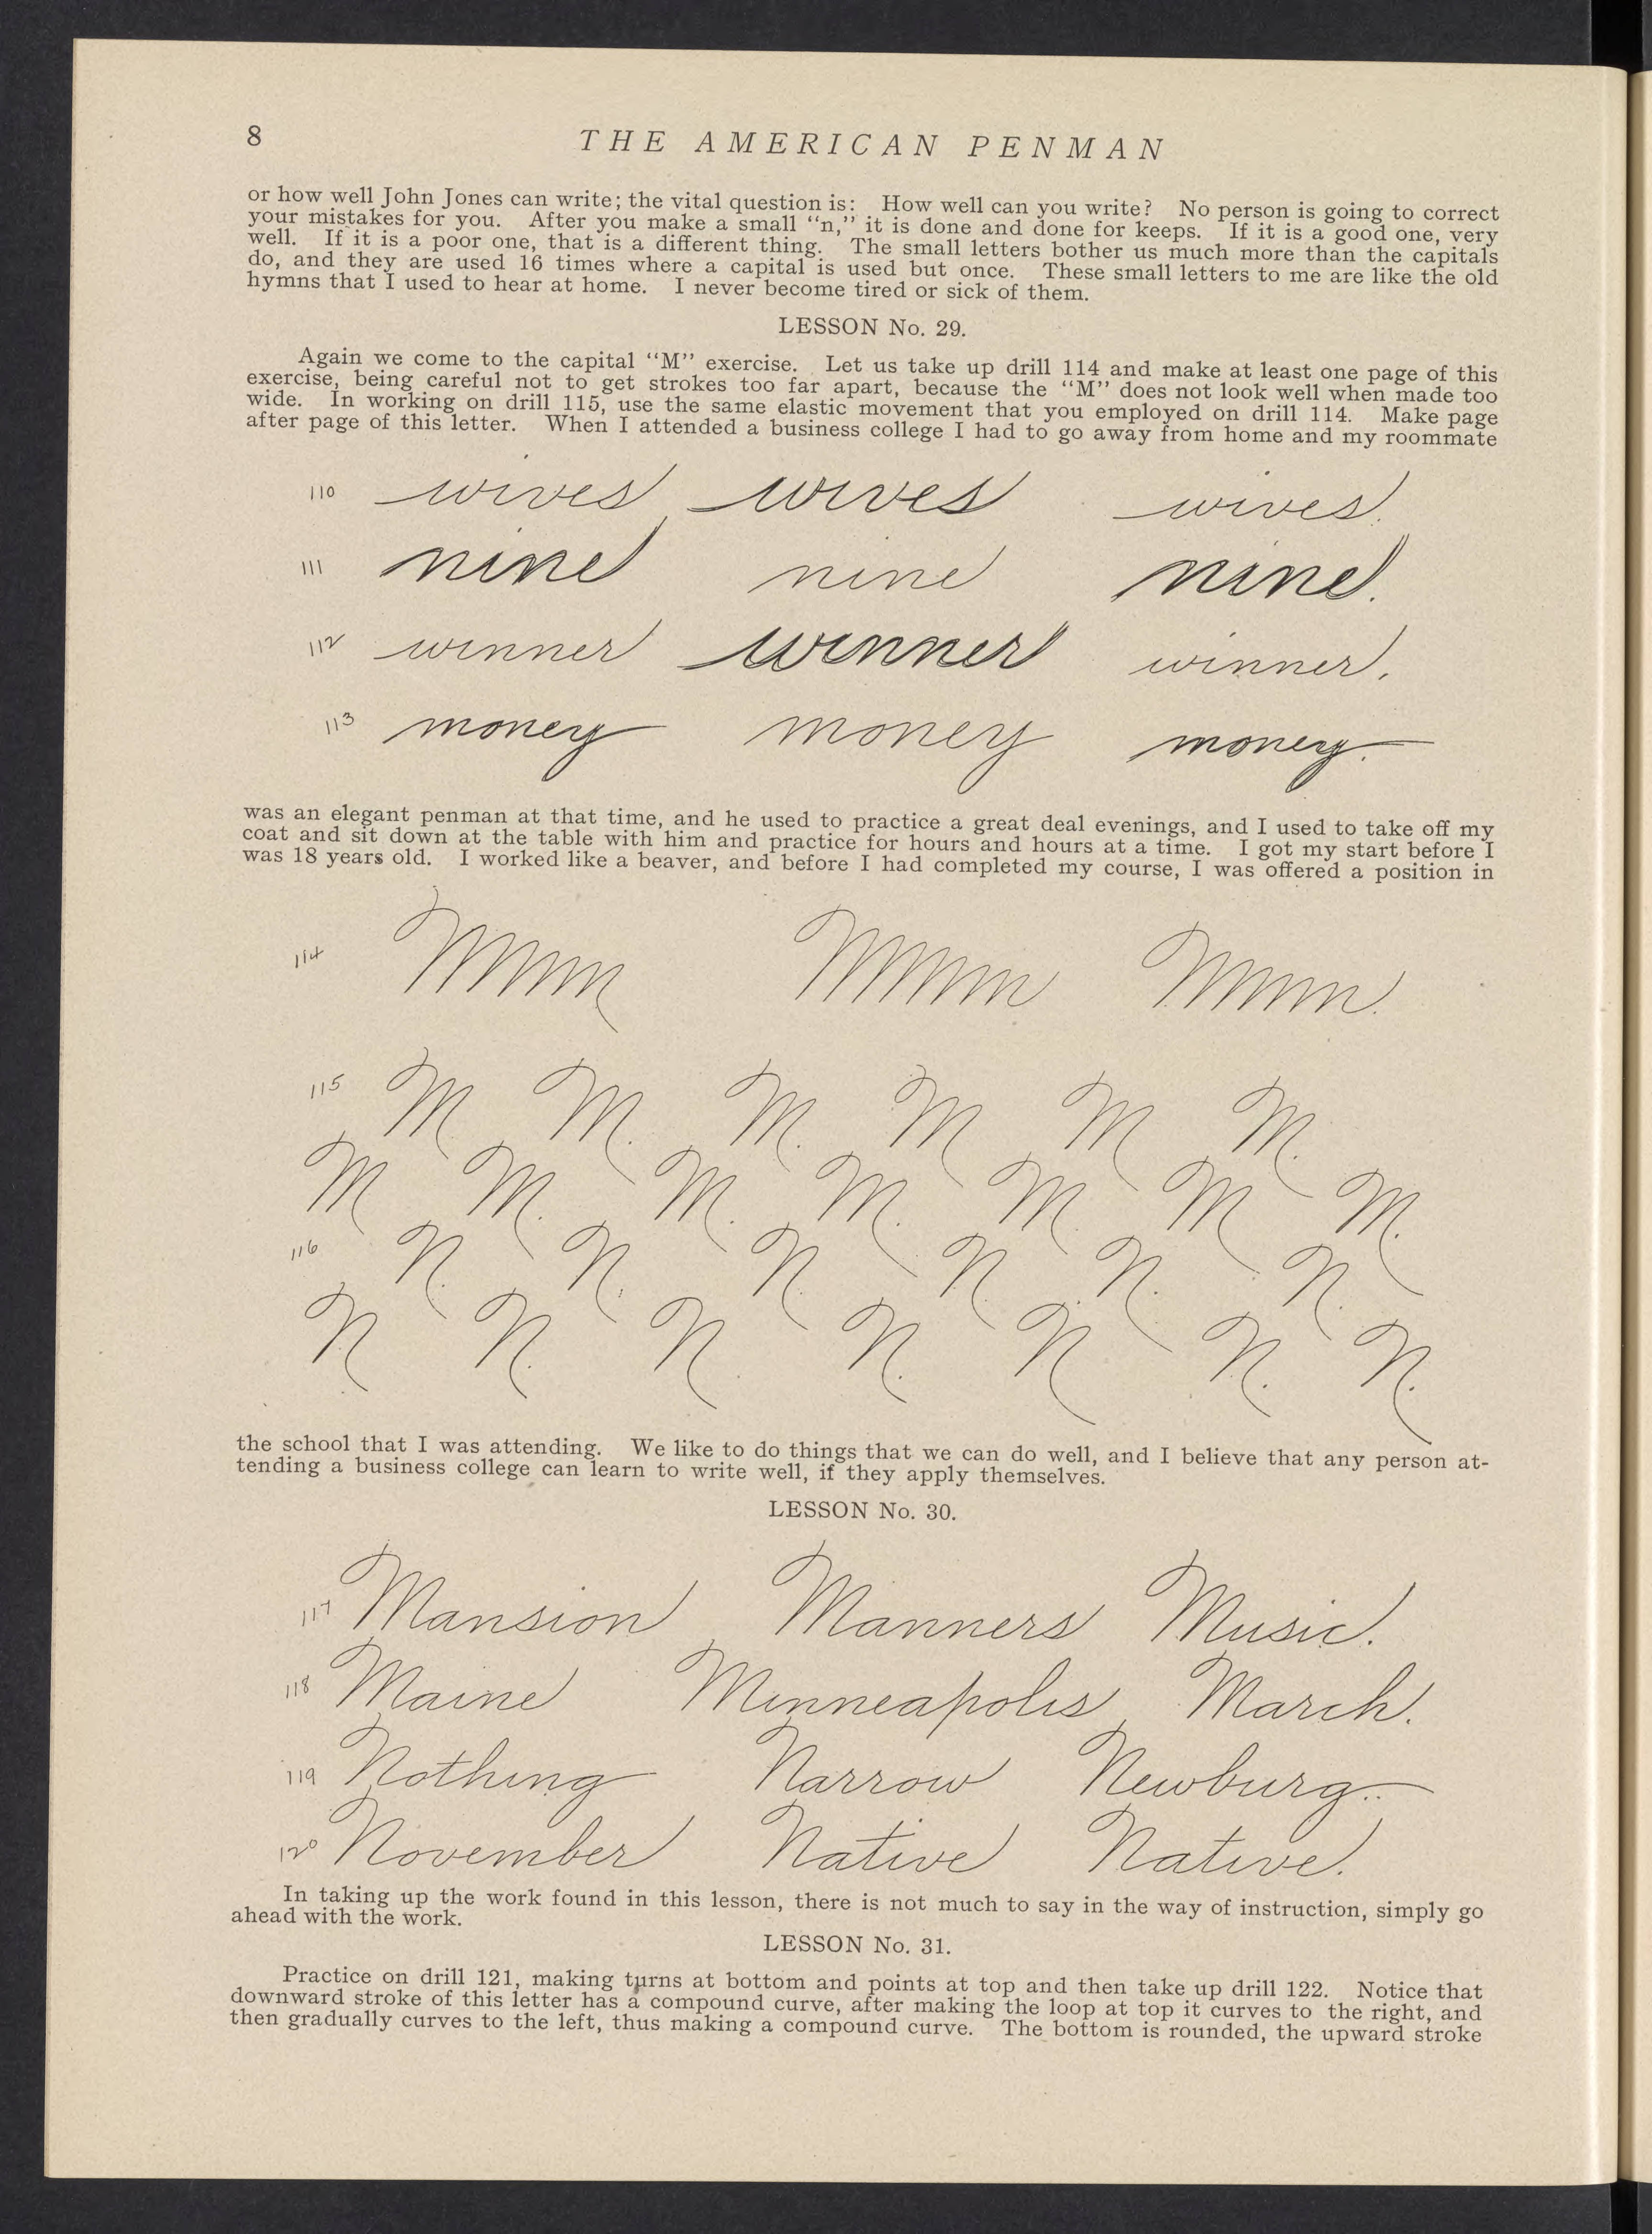 8
THE AMERICAN PENMAN
or how well John Jones can write; the vital question is: How well can you write? No person is going to correct
your mistakes for you. After you make a small “n,” it is done and done for keeps. If it is a good one, very
well. If it is a poor one, that is a different thing. The small letters bother us much more than the capitals
do, and they are used 16 times where a capital is used but once. These small letters to me are like the old
hymns that I used to hear at home. I never become tired or sick of them.
LESSON No. 29.
Again we come to the capital “M” exercise. Let us take up drill 114 and make at least one page of this
exercise, being careful not to get strokes too far apart, because the “M” does not look well when made too
wide. In working on drill 115, use the same elastic movement that you employed on drill 114. Make page
after page of this letter. When I attended a business college I had to go away from home and my roommate
110 wives wives wives.
111 nine nine nine.
112 winner winner winner.
113 money money money.
was an elegant penman at that time, and he used to practice a great deal evenings, and I used to take off my
coat and sit down at the table with him and practice for hours and hours at a time. I got my start before I
was 18 years old. I worked like a beaver, and before I had completed my course, I was offered a position in
114
115 M M. M. M M M.
M M. M. M. M. M M.
116 N. N. N. N. N. N.
N N. N N. N N. N.
the school that I was attending. We like to do things that we can do well, and I believe that any person at-
tending a business college can learn to write well, if they apply themselves.
LESSON No. 30.
117 Mansion Manners Music.
118 Maine Minneapolis March.
119 Nothing Narrow Newburg.
120 November Native Native.
In taking up the work found in this lesson, there is not much to say in the way of instruction, simply go
ahead with the work.
LESSON No. 31.
Practice on drill 121, making turns at bottom and points at top and then take up drill 122. Notice that
downward stroke of this letter has a compound curve, after making the loop at top it curves to the right, and
then gradually curves to the left, thus making a compound curve. The bottom is rounded, the upward stroke